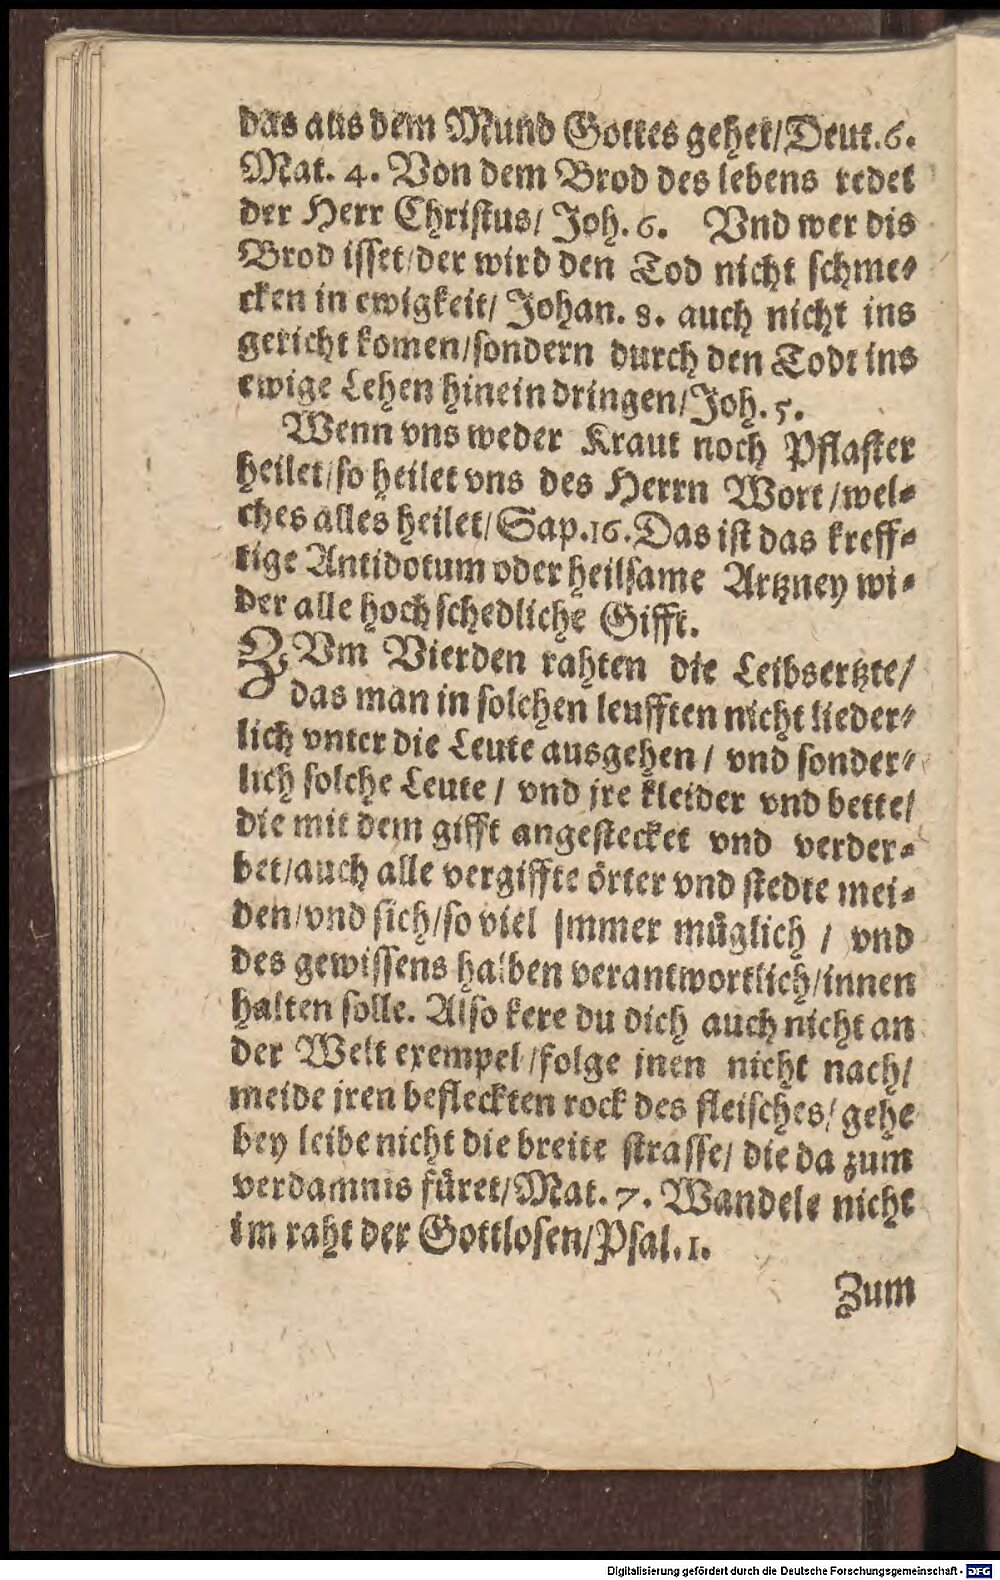 das aus dem Mund Gottes gehet/Deut.6.
Mat. 4. Von dem Brod des lebens redet
der Herr Christus/ Joh. 6. Vnd wer dis
Brod isset/der wird den Tod nicht schme-
cken in ewigkeit/ Johan. 8. auch nicht ins
gericht komen/sondern durch den Todt ins
ewige Lehen hinein dringen/Joh. 5.
Wenn vns weder Kraut noch Pflaster
heilet/so heilet vns des Herrn Wort/wel-
ches alles heilet/Sap.16.Das ist das kreff-
tige Antidotum oder heilsame Artzney wi-
der alle hoch schedliche Gifft.
ZVm Vierden rahten die Leibsertzte/
das man in solchen leufften nicht lieder-
lich vnter die Leute ausgehen/ vnd sonder-
lich solche Leute/ vnd jre kleider vnd bette/
die mit dem gifft angestecket vnd verder-
bet/auch alle vergiffte örter vnd stedte mei-
den/vnd sich/so viel jmmer müglich / vnd
des gewissens halben verantwortlich/innen
halten solle. Also kere du dich auch nicht an
der Welt exempel/folge jnen nicht nach/
meide jren befleckten rock des fleisches/ gehe
bey leibe nicht die breite strasse/ die da zum
verdamnis füret/Mat. 7. Wandele nicht
im raht der Gottlosen/Psal.1.
Zum
Digitalisierung gefördert durch die Deutsche Forschungsgemeinschaft - DFG